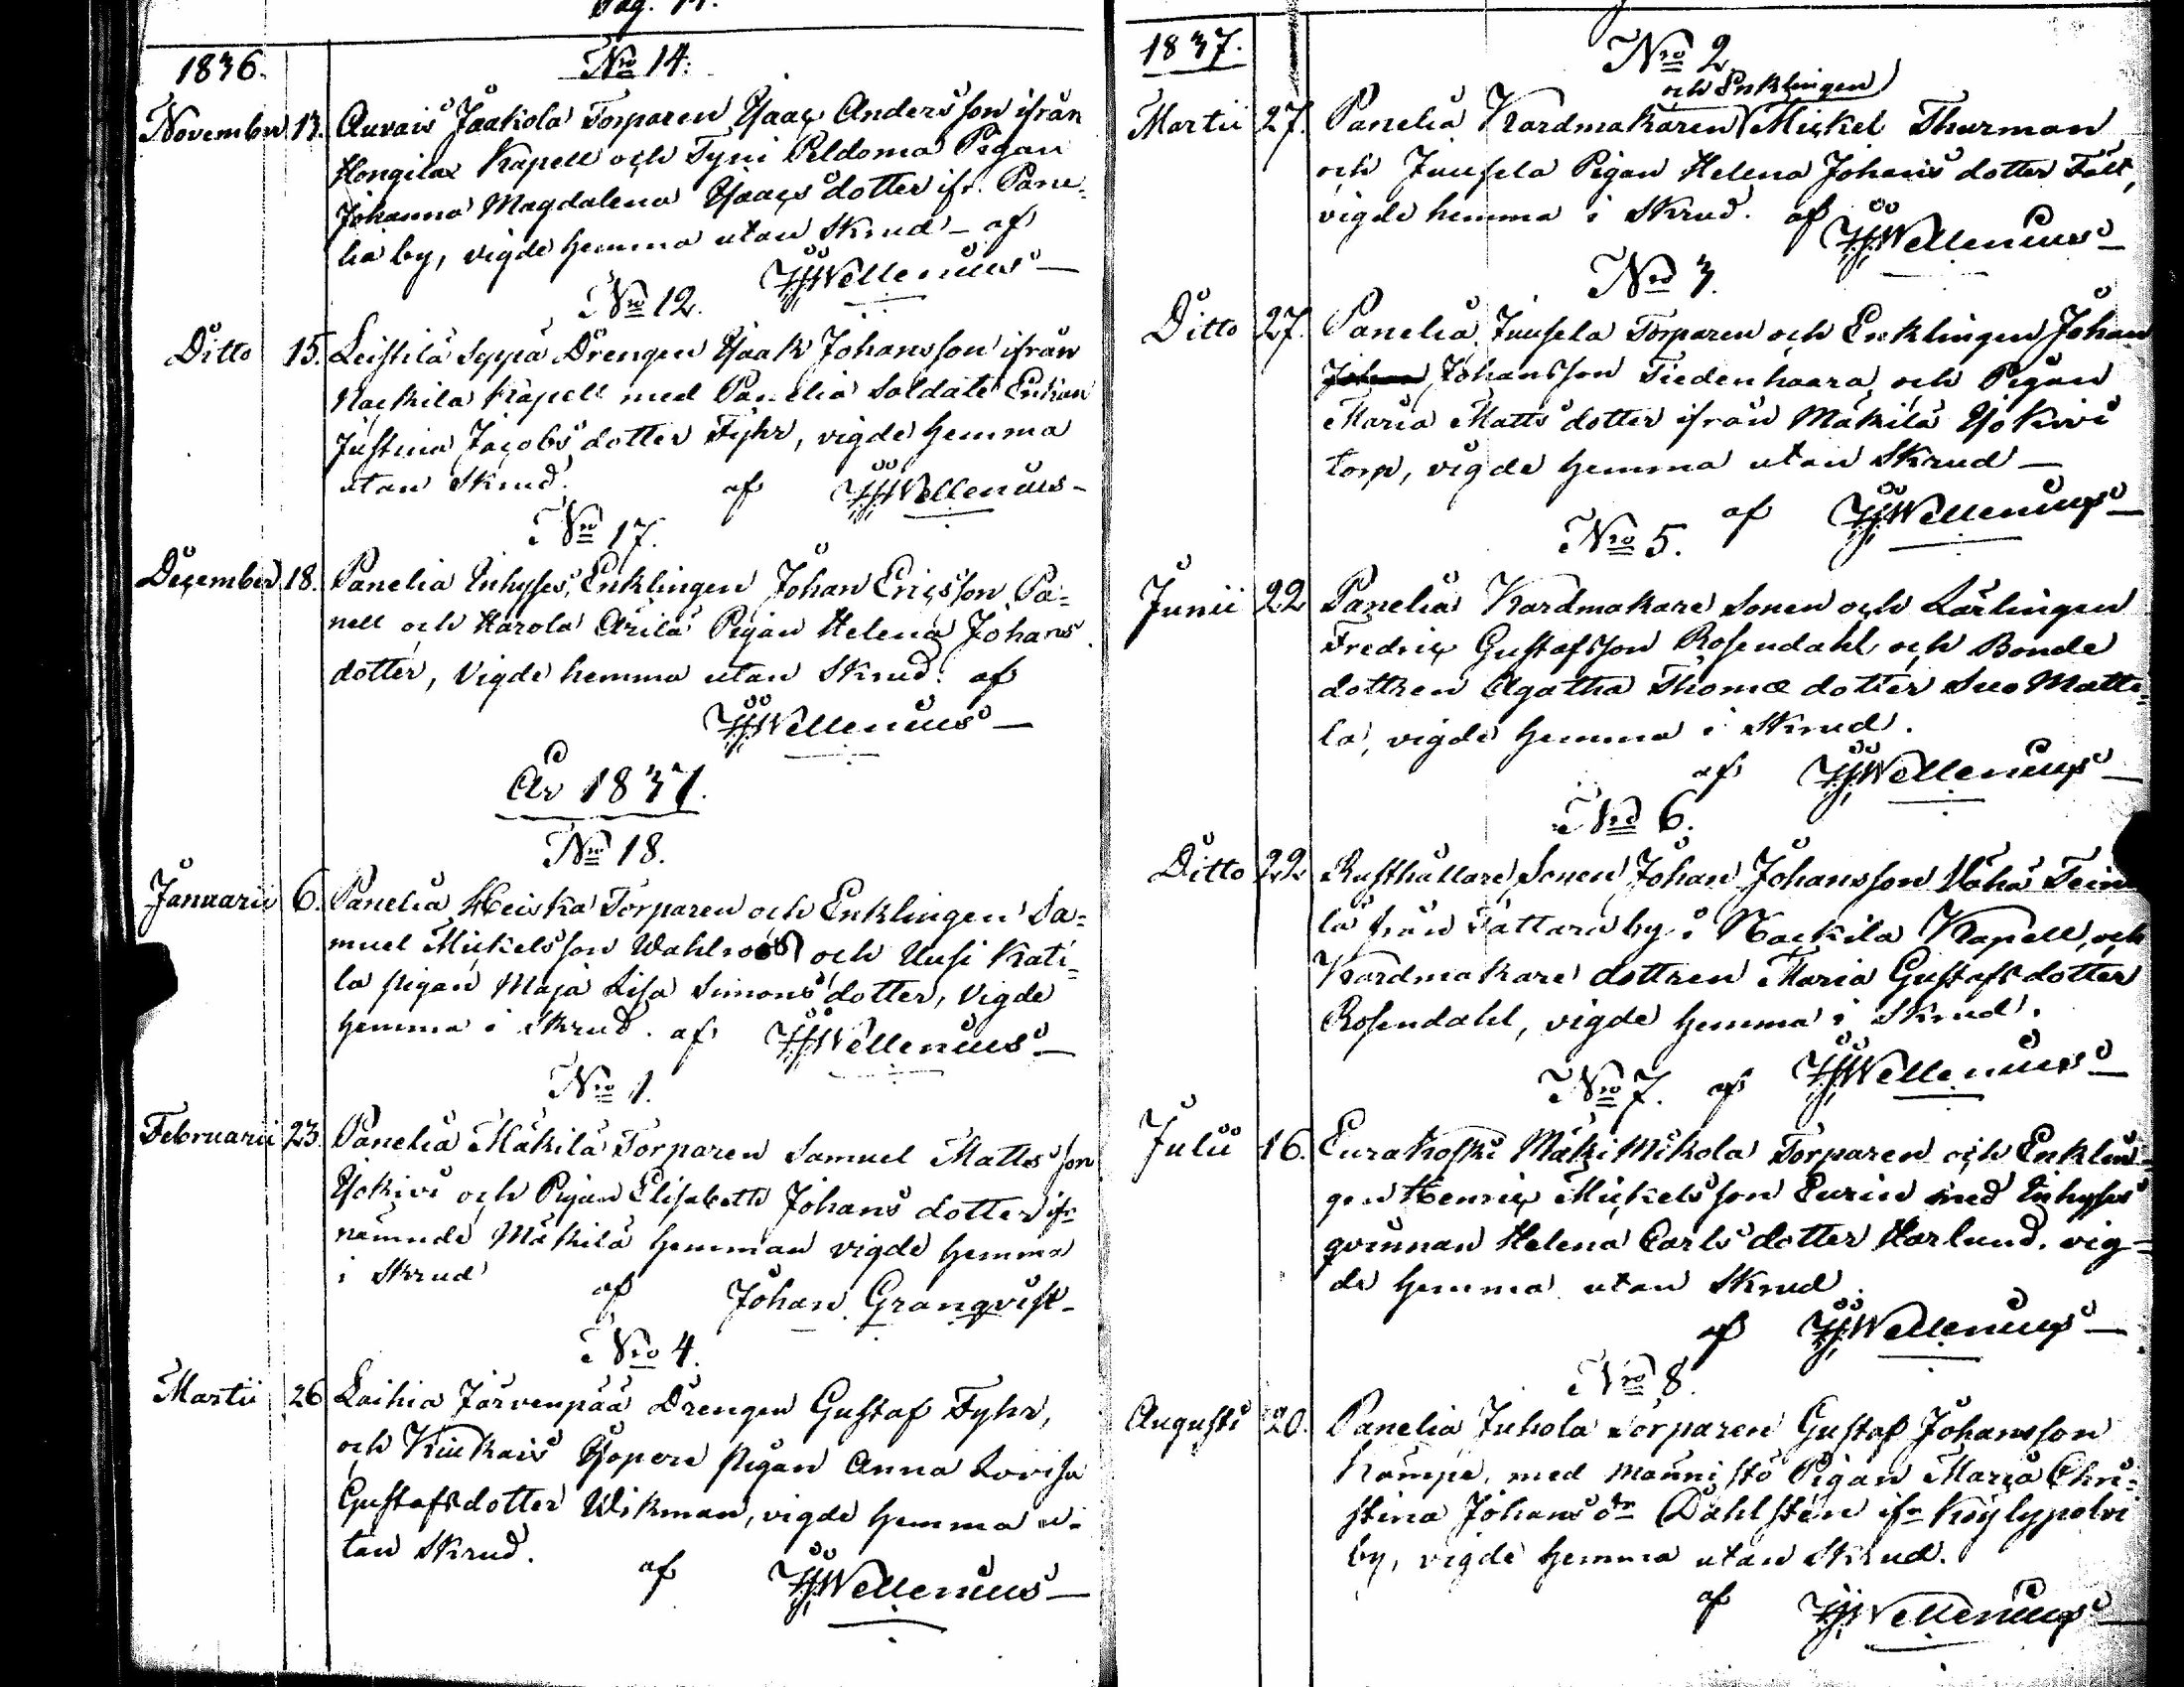 Pag.
1836.
No 14.
November 13. Auvais Jaakola Torparen Isaac Andersson ifrån
Hongilax Kapell och Tyni Peldoma Pigan
Johanna Magdalena Isaacs dotter ifr. Pane-
lia by, vigde hemma utan Skrud – af
Wellenius –
No 12.
Ditto 15. Leistilä Seppä Drengen Isaak Johansson ifrån
Nackila Kapell med Panelia Soldats Enkan
Justina Jacobs dotter Fyhr, vigde hemma
utan Skrud. af Wellenius –
No 17.
December 18. Panelia Inhyses, Enklingen Johan Ericsson Pa=
nell och Harola Ärilä Pigan Helena Johans
dotter, Vigde hemma utan Skrud. af
Wellenius –
År 1837.
No 18.
Januarii 6. Panelia Heiska Torparen och Enklingen Sa=
muel Mickelsson Wahlroos och Uusi Kati=
la pigan Maja Lisa Simons dotter, Vigde
hemma i Skrud. af Wellenius –
No 1.
Februarii 23. Panelia Mäkilä Torparen Samuel Mattsson
Isokivi och Pigan Elisabeth Johans dotter ifr
nämnde Mäkilä hemman vigde hemma
i Skrud af Johan Granqvist –
No 4.
Martii 26 Laihia Järvenpää Drengen Gustaf Fyhr,
och Kiukais Isopere pigan Anna Lovisa
Gustafsdotter Wikman, vigde hemma u-
tan Skrud.
af Wellenius –
1837.
No 2
och Enklingen
Martii 27. Panelia Kardmakaren Mickel Thurman
och Juusela Pigan Helena Johans dotter Fält,
vigde hemma i Skrud. af Wellenius –
No 3.
Ditto 27. Panelia Juusela Torparen och Enklingen Johan
Johansson Tiedenhaara, och Pigan
Maria Matts dotter ifrån Mäkilä Isokivi
torp, vigde hemma utan Skrud –
af Wellenius –
No 5.
Junii 22 Panelia Kardmakare Sonen och Lärlingen
Fredric Gustafsson Rosendahl och Bonde
dottren Agatha Thomæ dotter Suo Matti=
la, vigde hemma i Skrud.
af Wellenius –
No 6.
Ditto 22 Rusthållare Sonen Johan Johansson Vähä
lä från Tattara by i Nackila Kapell, och
Kardmakare dottren Maria Gustafsdotter
Rosendahl, vigde hemma i Skrud.
af Wellenius –
No 7.
Julii 16. Eurakoski Mäki Mikola Torparen och Enklin=
gen Henric Mickelsson Eurin med Inhyses
qvinnan Helena Carls dotter Harlund. vig=
de hemma utan Skrud.
af Wellenius –
No 8.
Augusti 20. Panelia Juhola Torparen Gustaf Johansson
Kämpe, med Männistö Pigan Maria Chri=
stina Johans dr Dahlstén ifr Köylypolvi
by, vigde hemma utan Skrud.
af Wellenius